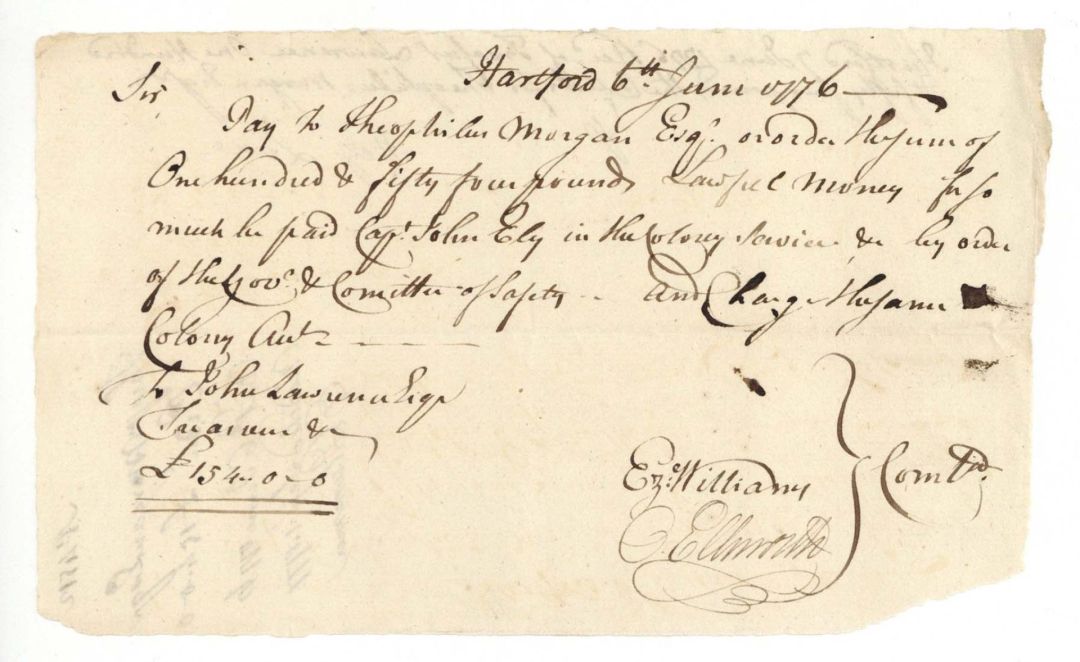 Hartford 6th June 1776
Sir
Pay to Theophilus Morgan Esqr. or order the Sum of
One hundred & fifty four pounds Lawful Money for so
much he paid Capt. John Ely in the Colony Service & by order
of the Govr. & Comittee of Safety - And Charge the same
Colony Acct
To John Lawrence Esqr
Treasurer &c
£154-0-0
Ezl. Williams
O. Ellsworth
Comtee.